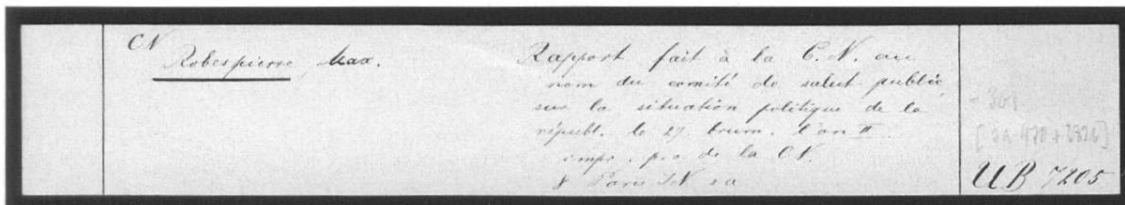 CN
Robespierre, Max.
Rapport fait à la C.N. au
nom du comité de salut public
sur la situation politique de la
républ. le 27 brum. l'an II
impr. p. o. de la CN.
8 Paris IN sa
+ 301
UB 7205